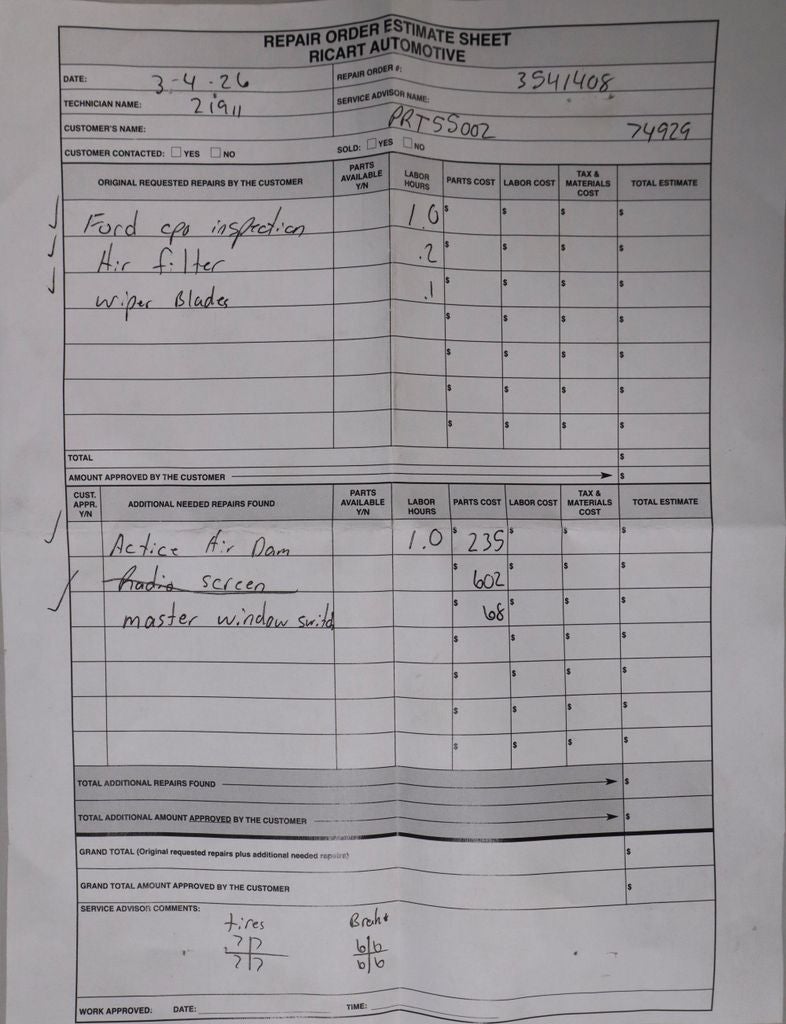 REPAIR ORDER ESTIMATE SHEET
RICART AUTOMOTIVE
DATE: 3-4-26 REPAIR ORDER #: 3541408
TECHNICIAN NAME: 21911 SERVICE ADVISOR NAME:
CUSTOMER'S NAME: PRTSS002 74929
CUSTOMER CONTACTED: YES NO SOLD: YES NO
ORIGINAL REQUESTED REPAIRS BY THE CUSTOMER PARTS AVAILABLE Y/N LABOR HOURS PARTS COST LABOR COST TAX & MATERIALS COST TOTAL ESTIMATE
Ford cpo inspection 1.0 $ $ $ $
Air filter .2 $ $ $ $
wiper Blades .1 $ $ $ $
$ $ $ $
$ $ $ $
$ $ $ $
$ $ $ $
TOTAL $
AMOUNT APPROVED BY THE CUSTOMER $
CUST. APPR. Y/N ADDITIONAL NEEDED REPAIRS FOUND PARTS AVAILABLE Y/N LABOR HOURS PARTS COST LABOR COST TAX & MATERIALS COST TOTAL ESTIMATE
Actice Air Dam 1.0 $ 235 $ $ $
Radio screen $ 602 $ $ $
master window switch $ 68 $ $ $
$ $ $ $
$ $ $ $
$ $ $ $
$ $ $ $
TOTAL ADDITIONAL REPAIRS FOUND $
TOTAL ADDITIONAL AMOUNT APPROVED BY THE CUSTOMER $
GRAND TOTAL (Original requested repairs plus additional needed repairs) $
GRAND TOTAL AMOUNT APPROVED BY THE CUSTOMER $
SERVICE ADVISOR COMMENTS:
tires Brake
7 7 6 6
7 7 6 6
WORK APPROVED: DATE: TIME: